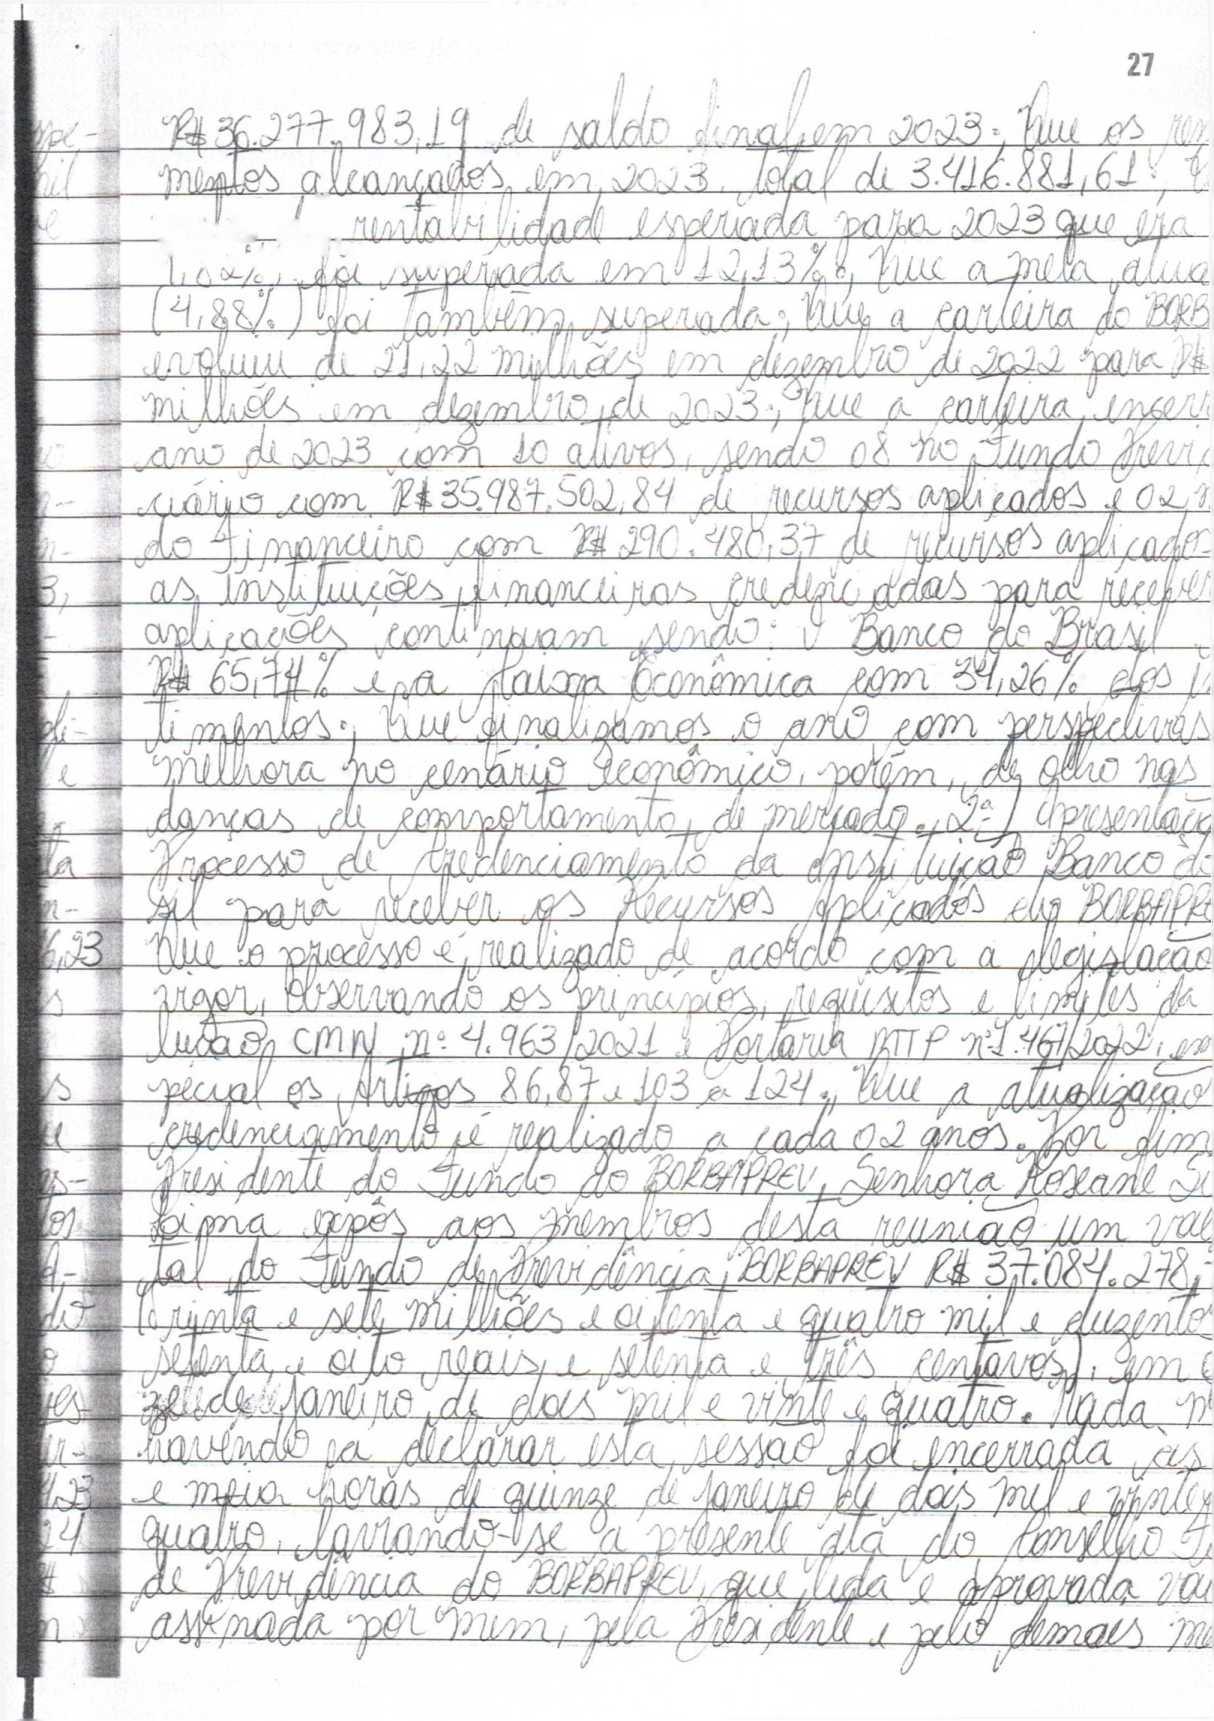 27
R$ 36.277.983,19 de saldo final em 2023; Que os ren
mentos alcançados em 2023, total de 3.416.881,61;
rentabilidade esperada para 2023 que era
foi superada em 12,13%; Que a meta atua
(4,88%) foi também superada; Que a carteira do BORB
evoluiu de 21,22 milhões em dezembro de 2022 para R$
milhões em dezembro de 2023; Que a carteira encerr
ano de 2023 com 10 ativos, sendo 08 no Fundo Previ
ciário com R$ 35.987.502,84 de recursos aplicados e 02 n
do Financeiro com R$ 290.480,37 de recursos aplicado
as Instituições financeiras credenciadas para receber
aplicações continuam sendo: Banco do Brasil
R$ 65,74% e a Caixa Econômica com 34,26% dos
timentos; Que finalizamos o ano com perspectivas
melhora no cenário econômico, porém, de olho nas
danças de comportamento de mercado. 2ª) Apresentaçã
Processo de Credenciamento da Instituição Banco do
sil para receber os Recursos Aplicados do BORBAPRE
Que o processo é realizado de acordo com a legislação
vigor, observando os princípios, requisitos e limites da
lução CMN nº 4.963/2021 e Portaria MTP nº 1.467/2022, em
pecial os Artigos 86, 87 e 103 a 124; Que a atualização
credenciamento é realizado a cada 02 anos. Por fim
Presidente do Fundo do BORBAPREV, Senhora Roseane
expôs aos membros desta reunião um val
tal do Fundo de Previdência, BORBAPREV R$ 37.084.278,
(trinta e sete milhões e oitenta e quatro mil e duzento
setenta e oito reais e setenta e três centavos), em
ze de janeiro de dois mil e vinte e quatro. Nada m
havendo a declarar esta sessão foi encerrada às
e meia horas de quinze de janeiro de dois mil e vinte e
quatro, lavrando-se a presente Ata do Conselho
de Previdência do BORBAPREV, que lida e aprovada vai
assinada por mim, pela Presidente e pelo demais me